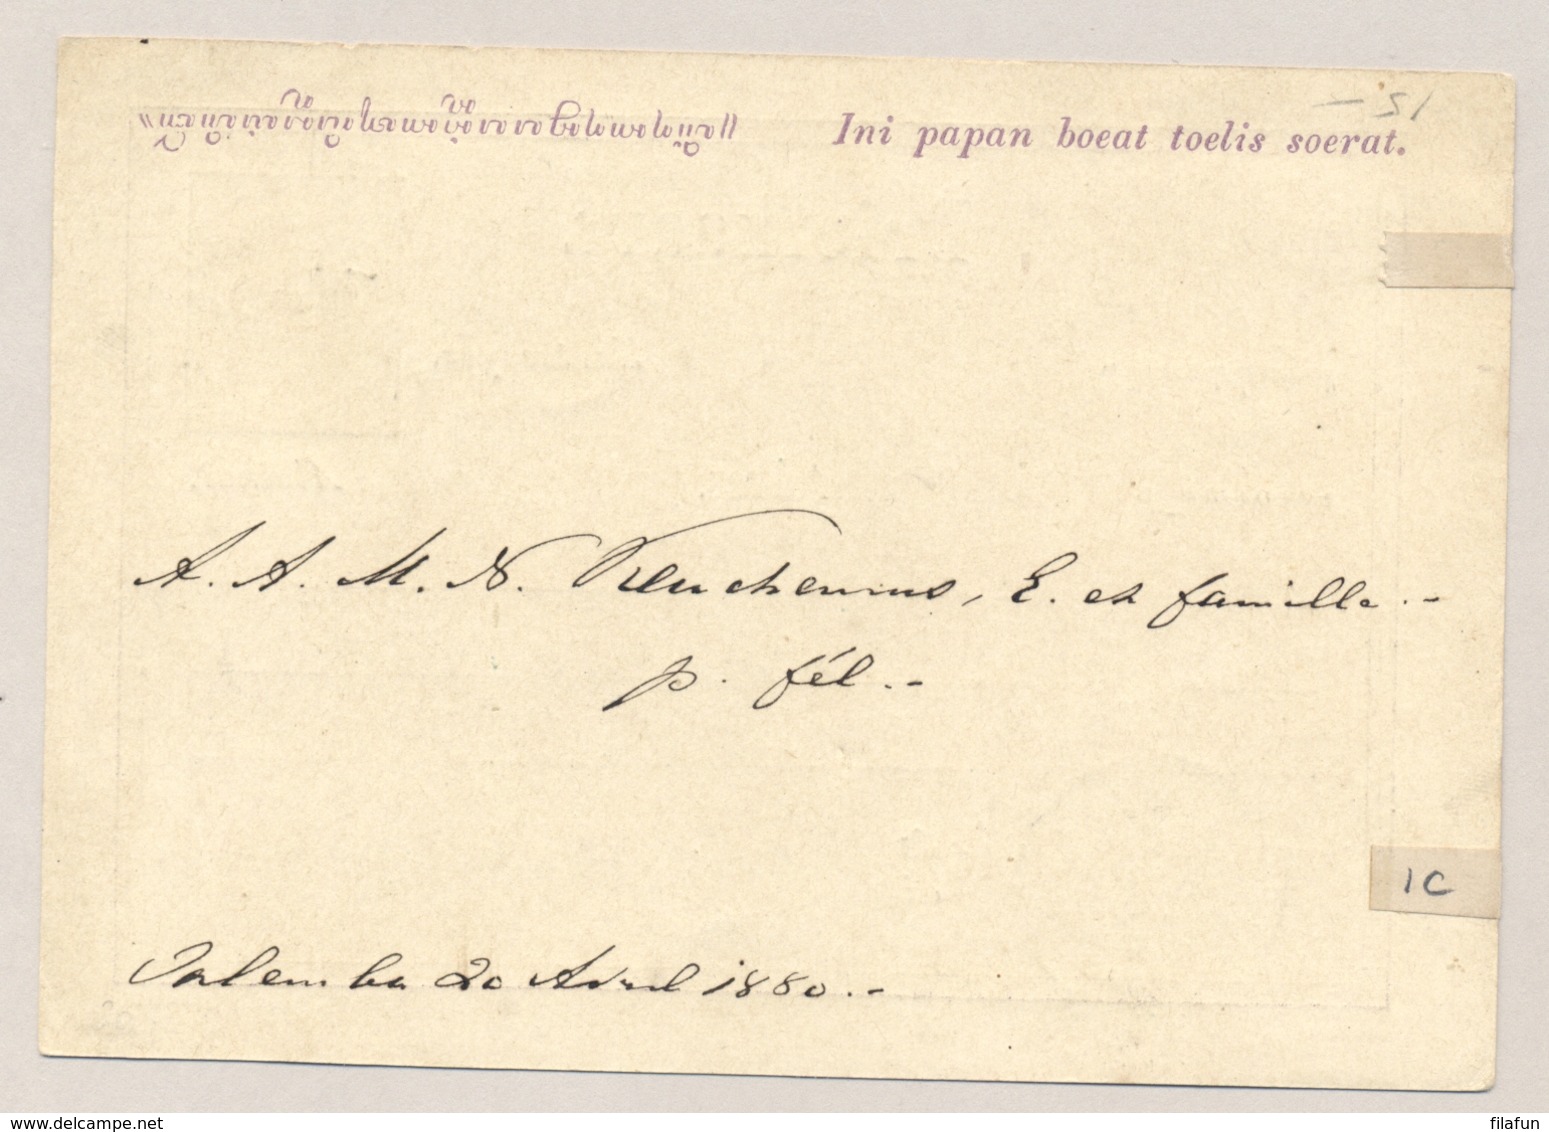 Ini papan boeat toelis soerat.
15 -
A. A. M. N. Keuchenius, E. et famille.-
p. fél.-
1C
Salemba 20 Avril 1880.-
delcampe.net
filafun